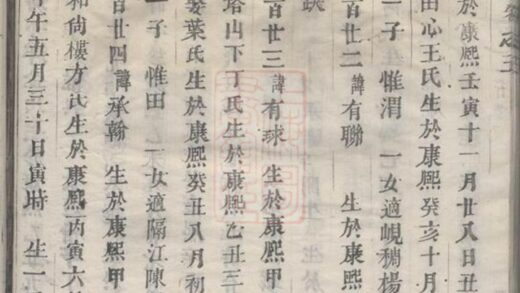 於康熙壬寅十一月廿八日丑
田心王氏生於康熙癸亥十月
一子 惟渭 一女適峴稍楊
百廿二 諱有聯 生於康熙
缺
百廿三 諱有球 生於康熙甲
塔山下丁氏生於康熙乙丑三
娶葉氏生於康熙癸丑八月初
一子 惟田 一女適隔江陳
百廿四 諱承翰 生於康熙甲
和尙樓方氏生於康熙丙寅六
午五月三十日寅時 生一